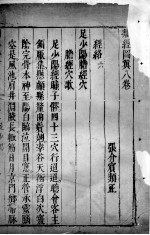 類經圖翼八卷
張介賓類
經絡六
足少陽膽經穴
膽經穴歌
足少陽經瞳子髎四十三穴行迢迢聽會客主
頷厭集懸顱懸釐曲鬢翹率谷天衝浮白次竅
陰完骨本神至陽白臨泣開目窗正營承靈腦
空是風池肩井淵腋長輒筋日月京門鄉帶脈